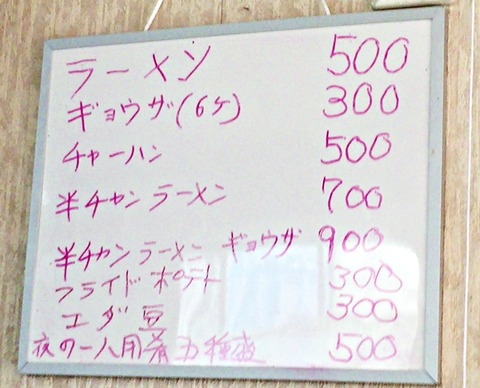 ラーメン 500
ギョウザ(6ケ) 300
チャーハン 500
半チャンラーメン 700
半チャンラーメン ギョウザ 900
フライドポテト 300
エダ豆 300
夜の一人用 500